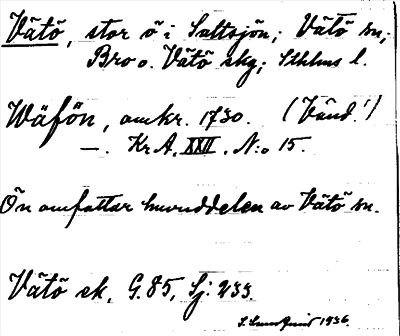 Vätö, stor ö i Saltsjön; Vätö sn,
Bro o. Vätö skg; Sthlms l.
Wäfön, omkr. 1730. (Vänd!)
—. Kr A. XXII. N:o 15.
Ön omfattar huvuddelen av Vätö sn.
Vätö sk, G. 85, Sj: 233
1936